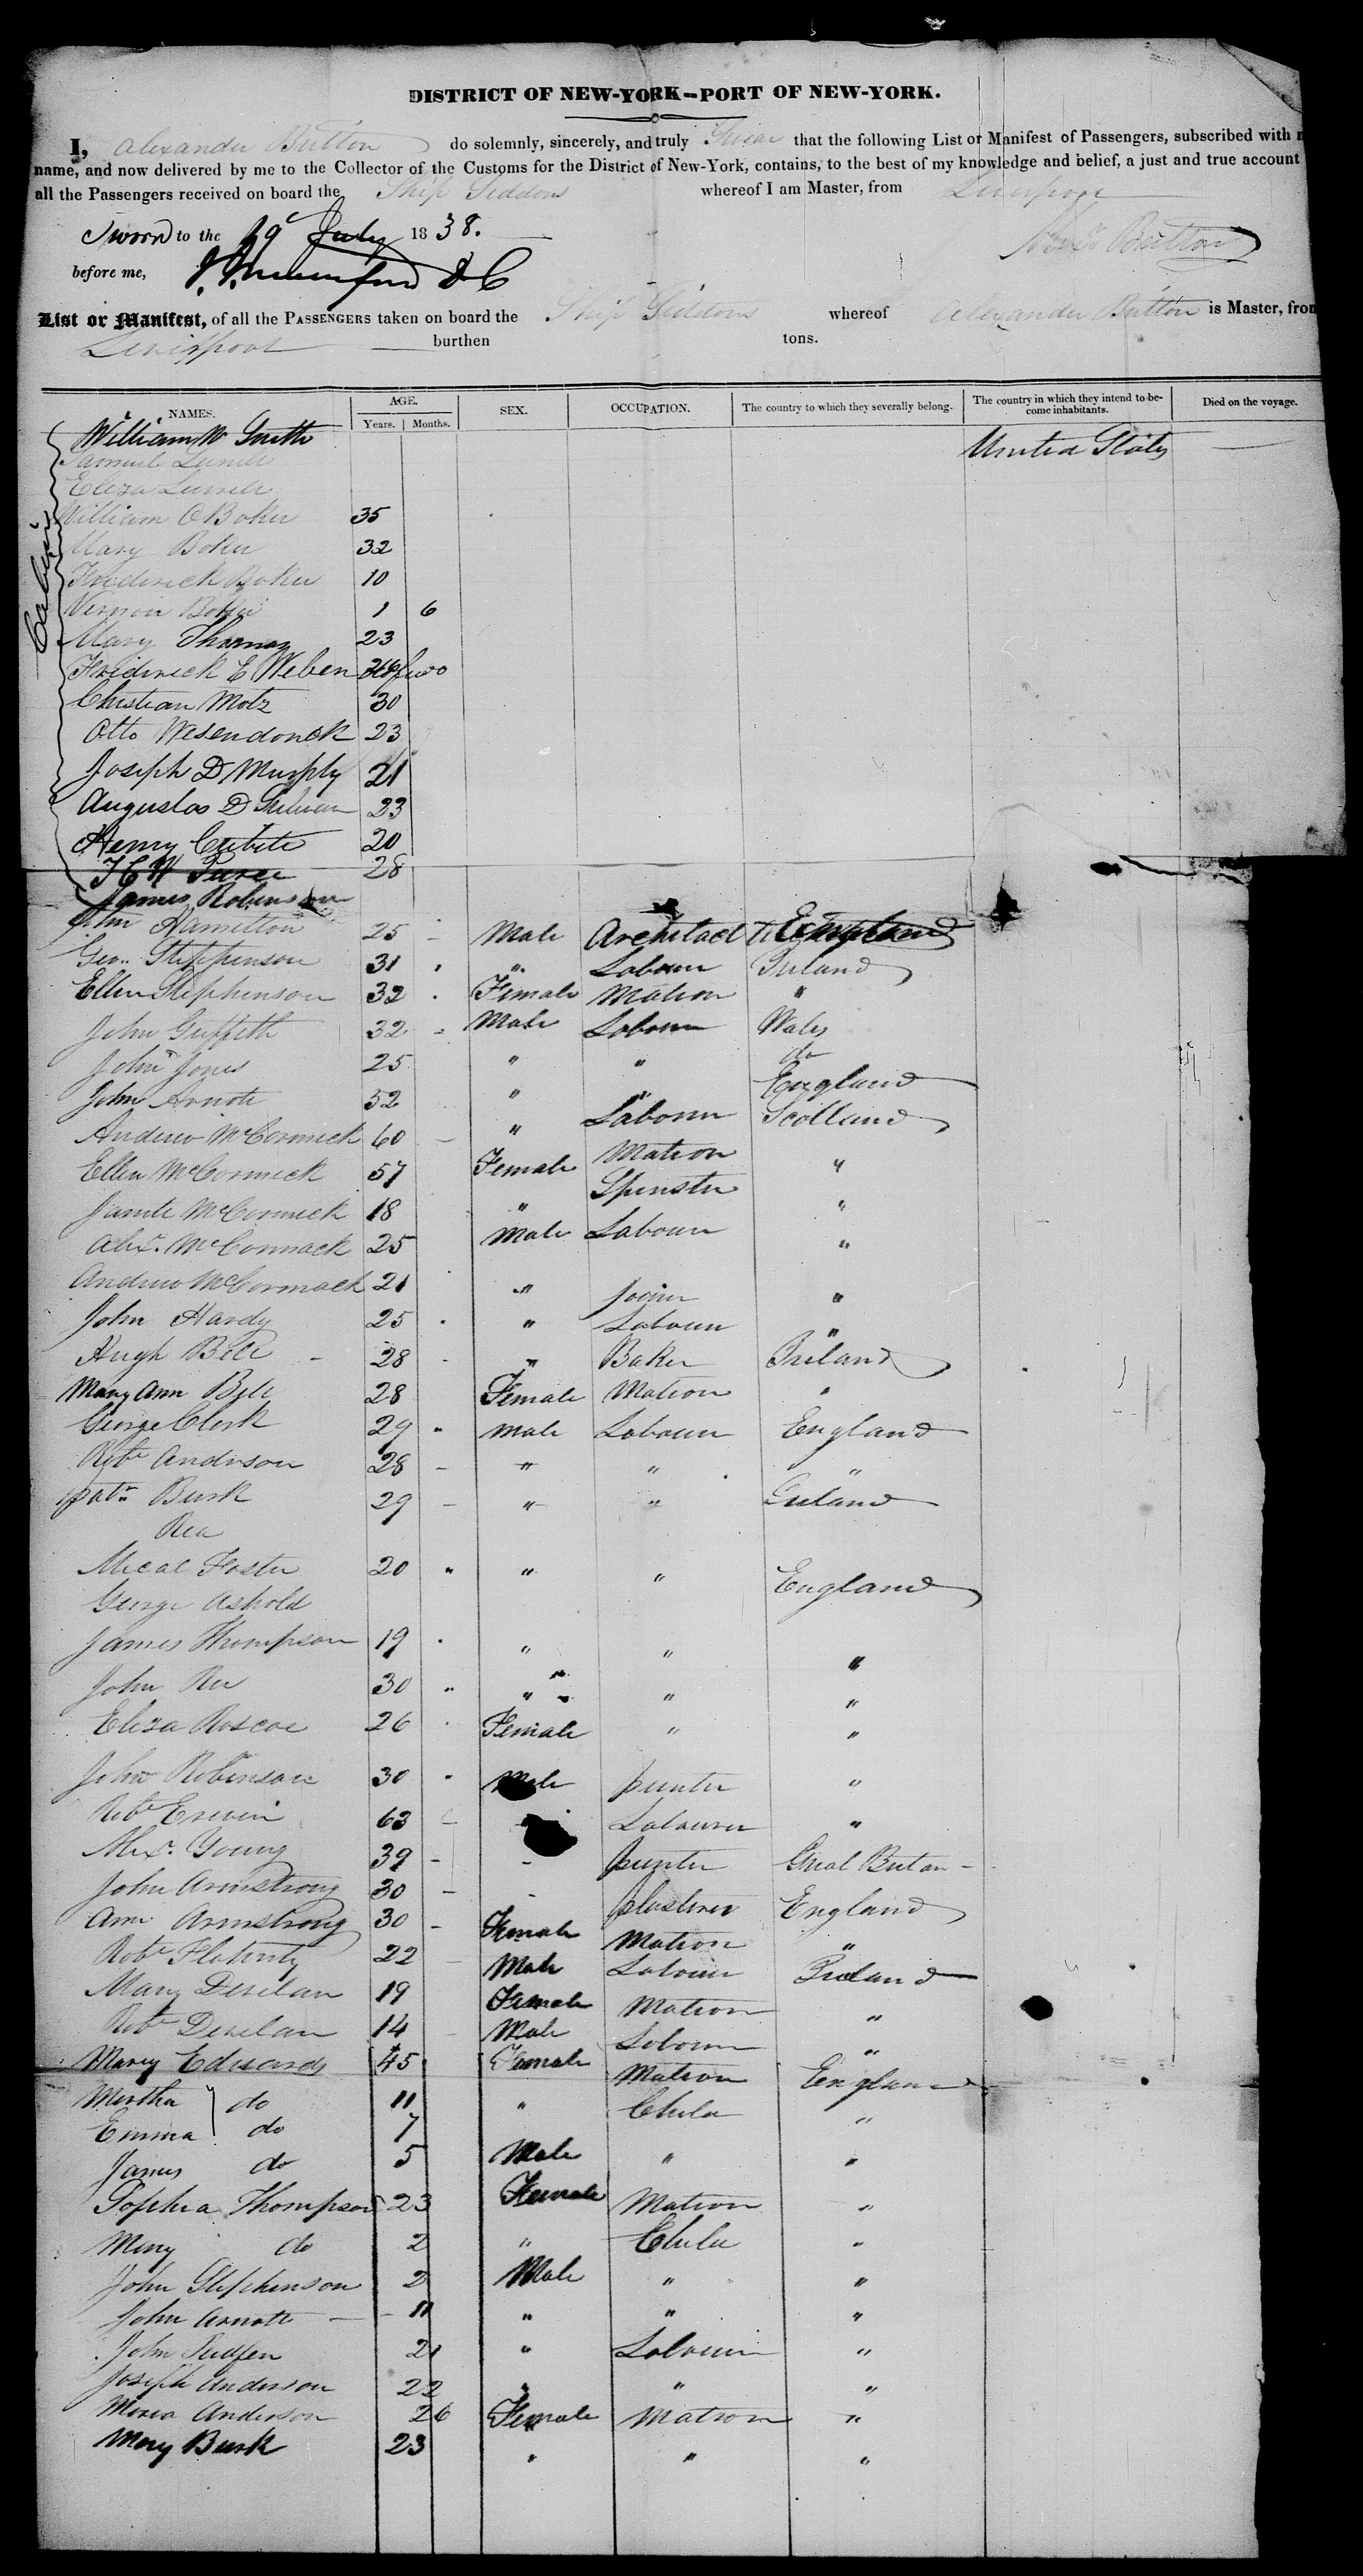 DISTRICT OF NEW-YORK--PORT OF NEW-YORK.
I, Alexander Britton do solemnly, sincerely, and truly Swear that the following List or Manifest of Passengers, subscribed with
name, and now delivered by me to the Collector of the Customs for the District of New-York, contains, to the best of my knowledge and belief, a just and true account
all the Passengers received on board the Ship Siddons whereof I am Master, from Liverpool
Sworn to the 19 July 1838.
Britton
before me,
List or Manifest, of all the PASSENGERS taken on board the Ship Siddons whereof Alexander Britton is Master, from
Liverpool burthen tons.
NAMES. AGE. Years. Months. SEX. OCCUPATION. The country to which they severally belong. The country in which they intend to become inhabitants. Died on the voyage.
Cabin
William W Smith United States
Samuel
Eliza
William O Boker 35
Mary Boker 32
Frederick Boker 10
Vernon Boker 1 6
Mary Thomas 23
Fredirick E Weben
Christian Motz 30
Otto Wesendonck 23
Joseph D Murphy 21
Augustos D 23
Henry 20
28
James Robinson
John Hamilton 25 - Male Architect England
Geo. Stephenson 31 " Labourr Ireland
Ellen Stephenson 32 Female Matron "
John Griffith 32 - Male Labourr Wales
John Jones 25 " " do
John Arnott 52 " " England
Andrew McCormick 60 - " Labourr Scotland
Ellen McCormick 57 Female Matron "
Janete McCormick 18 " Spinster "
Alexr. McCormack 25 Male Labourr "
Andrew McCormack 21 " Joiner "
John Hardy 25 " Labourr "
Hugh Bell 28 " Baker Ireland
Mary Ann Bell 28 Female Matron "
George Clark 29 " Male Labourr England
Robt Anderson 28 - " " "
Patk Burk 29 - " " Ireland
Rea
Mical Foster 20 " " " England
George Ashold
James Thompson 19 " " "
John Rea 30 " " " "
Eliza Roscoe 26 Female " "
John Robinson 30 " Male painter "
Robt Erwin 63 - Labourer "
Alexr. Young 39 - - painter Great Britan
John Armstrong 30 - - plasterer England
Ann Armstrong 30 - Female Matron "
Robt Flaherty 22 Male Labourr Ireland
Mary Develan 19 Female Matron "
Robt Develan 14 Male Labourr "
Marey Edwards 45 Female Matron England
Martha do 11 " Child "
Emma do 7
James do 5 Male " "
Sophia Thompson 23 Female Matron "
Mary do 2 " Child "
John Stephenson 2 Male " "
John Arnott 11 " " "
John 21 " Labourr "
Joseph Anderson 22 " " "
Maria Anderson 26 Female Matron "
Mary Burk 23 " " "